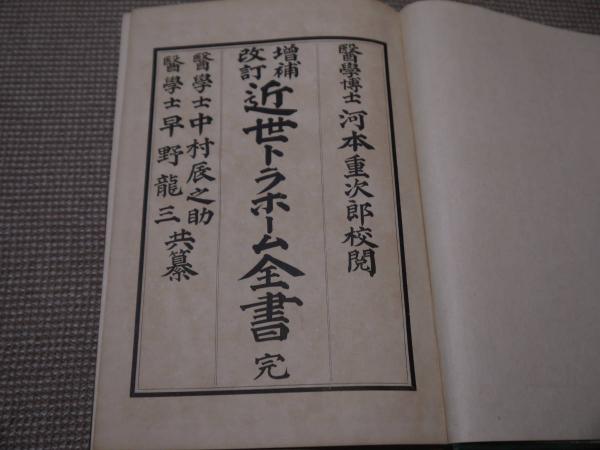 醫學博士 河本重次郎校閱
增補
改訂
近世トラホーム全書 完
醫學士 中村辰之助
醫學士 早野龍三 共纂